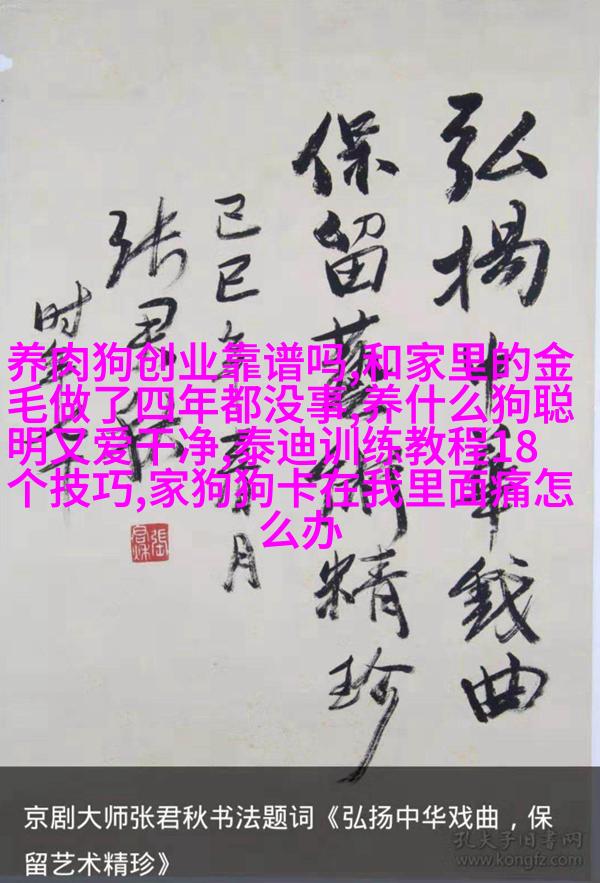 弘揚中華戲曲
保留藝術精珍
己巳年月
张君秋
时年
养肉狗创业靠谱吗,和家里的金
毛做了四年都没事,养什么狗聪
明又爱干净,泰迪训练教程18
个技巧,家狗狗卡在我里面痛怎
么办
京剧大师张君秋书法题词《弘扬中华戏曲，保
留艺术精珍》
孔夫子旧书网
www.kongfz.com